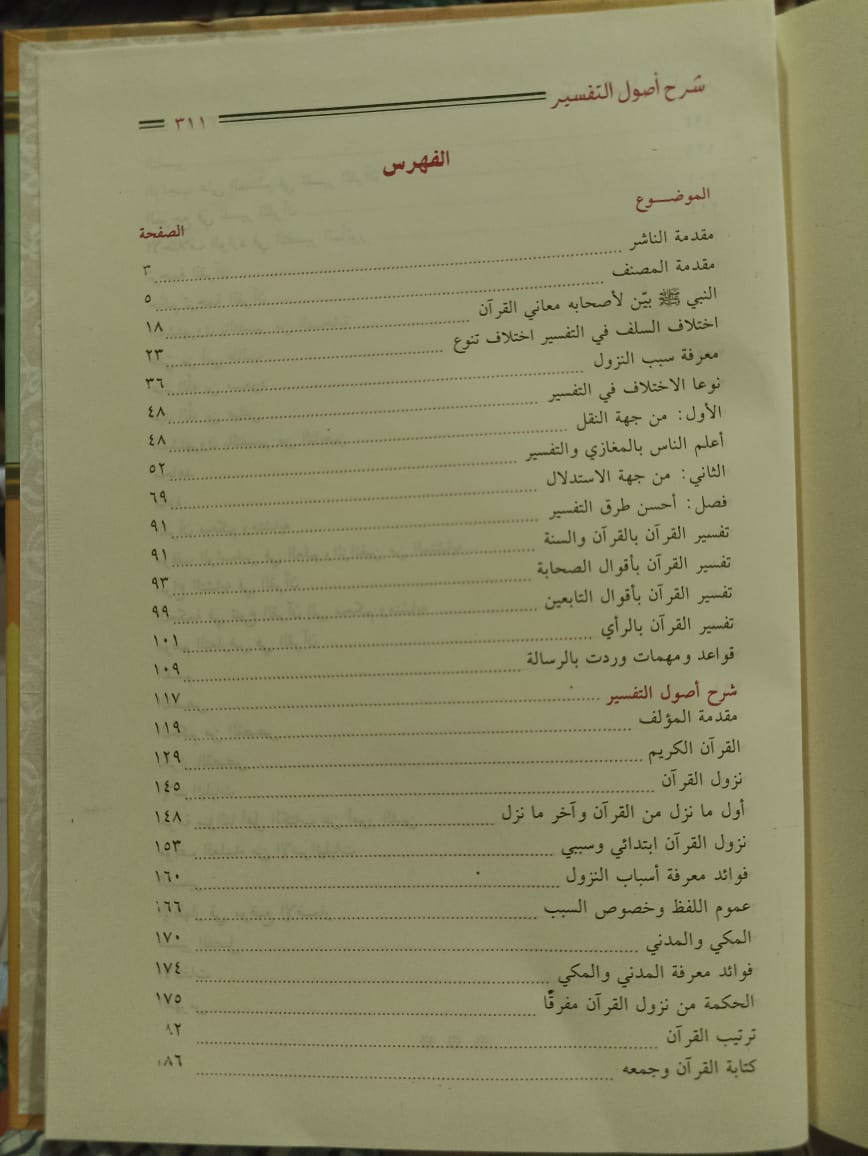 شرح أصول التفسير ٣١١
الفهرس
الموضـــوع
الصفحة
مقدمة الناشر ٣
مقدمة المصنف ٥
النبي ﷺ بيّن لأصحابه معاني القرآن ١٨
اختلاف السلف في التفسير اختلاف تنوع ٢٣
معرفة سبب النزول ٣٦
نوعا الاختلاف في التفسير ٤٨
الأول: من جهة النقل ٤٨
أعلم الناس بالمغازي والتفسير ٥٢
الثاني: من جهة الاستدلال ٦٩
فصل: أحسن طرق التفسير ٩١
تفسير القرآن بالقرآن والسنة ٩١
تفسير القرآن بأقوال الصحابة ٩٣
تفسير القرآن بأقوال التابعين ٩٩
تفسير القرآن بالرأي ١٠١
قواعد ومهمات وردت بالرسالة ١٠٩
شرح أصول التفسير ١١٧
مقدمة المؤلف ١١٩
القرآن الكريم ١٢٩
نزول القرآن ١٤٥
أول ما نزل من القرآن وآخر ما نزل ١٤٨
نزول القرآن ابتدائي وسببي ١٥٣
فوائد معرفة أسباب النزول ١٦٠
عموم اللفظ وخصوص السبب ١٦٦
المكي والمدني ١٧٠
فوائد معرفة المدني والمكي ١٧٤
الحكمة من نزول القرآن مفرقًا ١٧٥
ترتيب القرآن
كتابة القرآن وجمعه ١٨٦